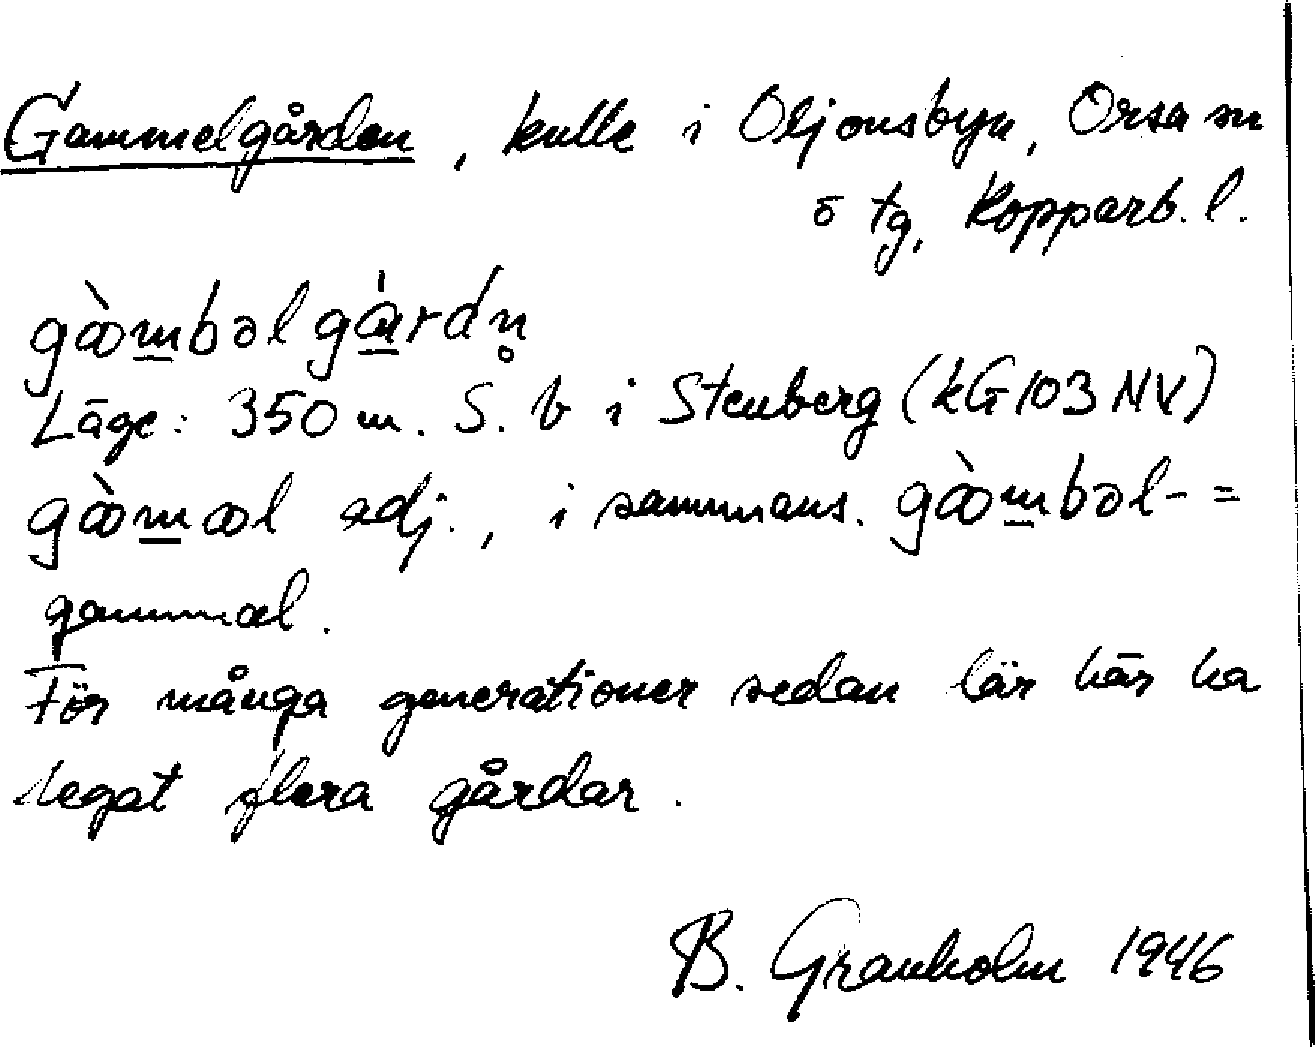 Gammelgården, kulle i Oljonsbyn, Orsa sn
o tg, Kopparb. l.
gàmbəlgárdn̥
Läge: 350 m. S. b i Stenberg (kG 103 NV)
gàmal adj., i sammans. gàmbəl- =
gammal.
För många generationer sedan lär här ha
legat flera gårdar.
B. Granholm 1946